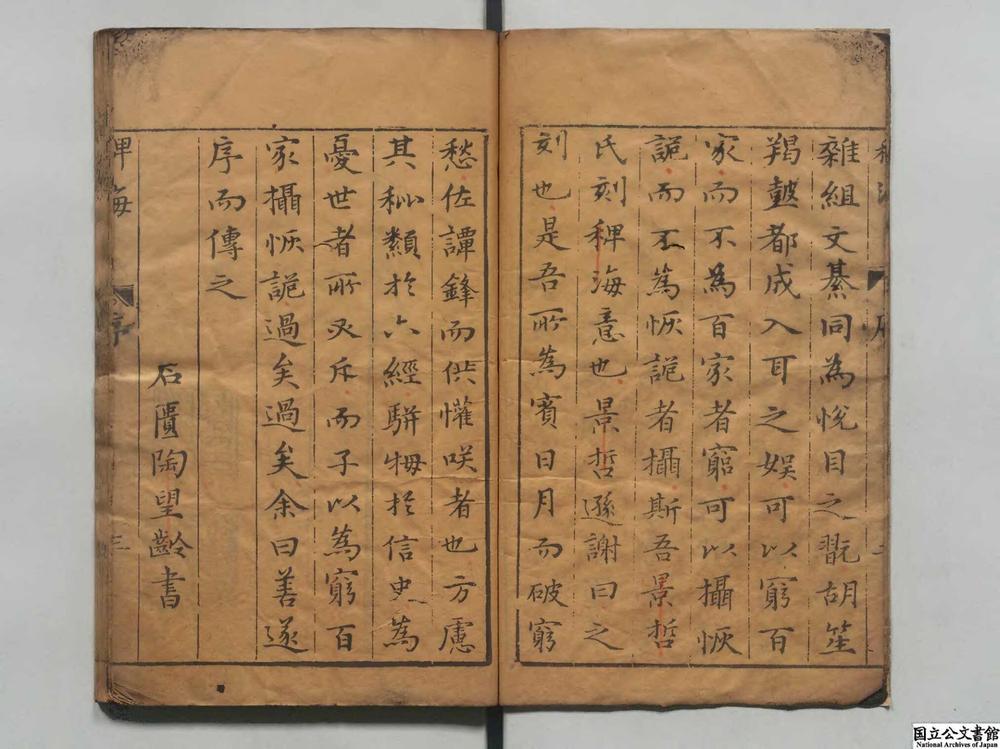 雜組文綦同為悅目之翫胡笙
羯皷都成入耳之娛可以窮百
家而不為百家者窮可以攝恢
詭而不為恢詭者攝斯吾景哲
氏刻稗海意也景哲遜謝曰之
刻也是吾所為賓日月而破窮
愁佐譚鋒而供懽咲者也方慮
其秕纇於六經駢拇於信史為
憂世者所呵斥而子以為窮百
家攝恢詭過矣過矣余曰善遂
序而傳之
石簣陶望齡書
稗海
序
三
国立公文書館
National Archives of Japan